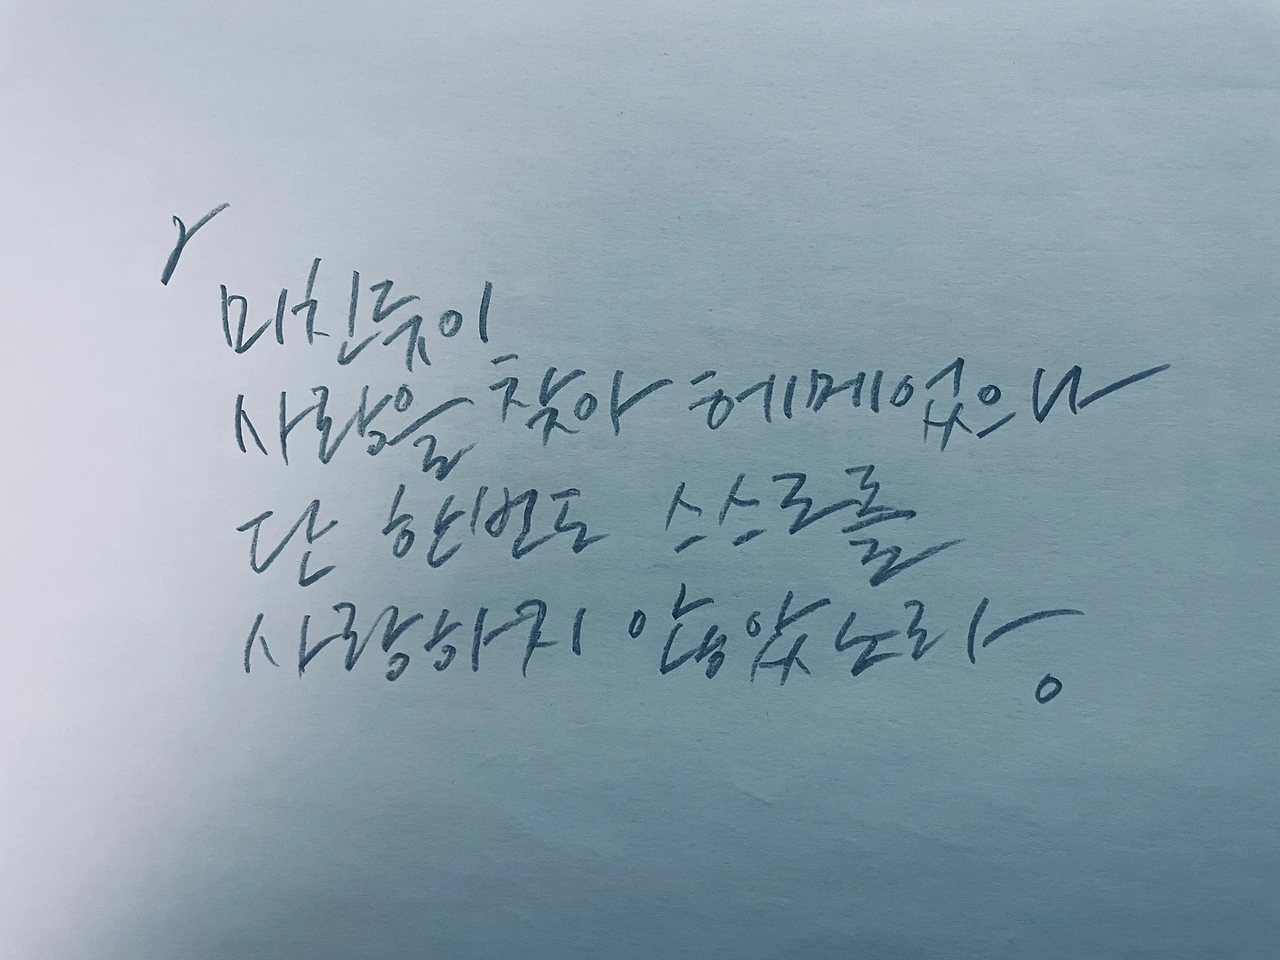 미친듯이
사랑을 찾아 헤메었으나
단 한번도 스스로를
사랑하지 않았노라。